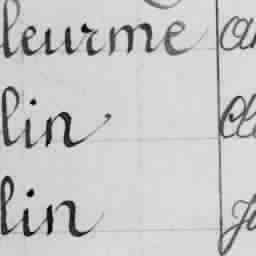 leurme
lin
lin